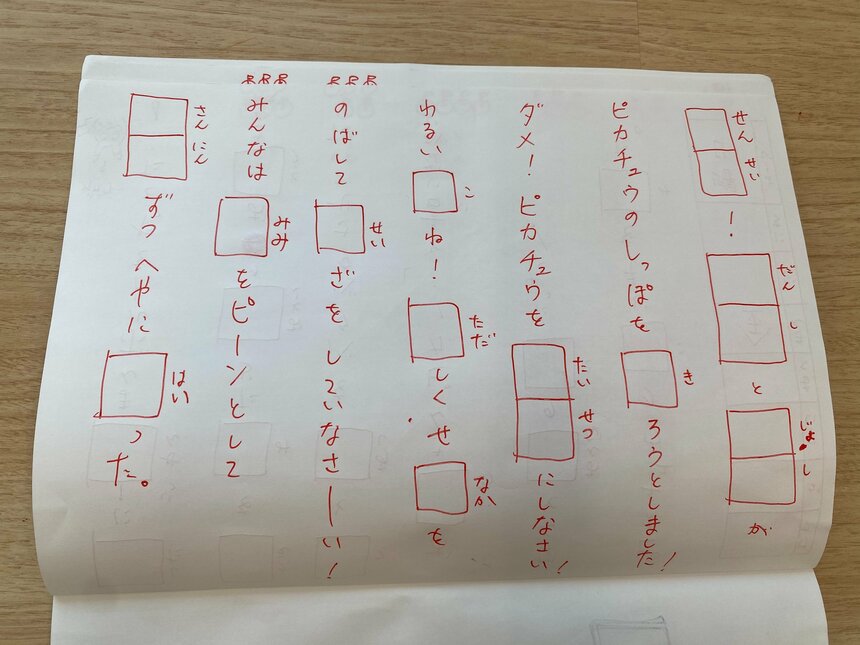 せんせい！だんしとじょしが
ピカチュウのしっぽをきろうとしました！
ダメ！ピカチュウをたいせつにしなさい！
わるいこね！ただしくせなかを
のばしてせいざをしていなさーい！
みんなはみみをピーンとして
さんにんずつへやにはいった。